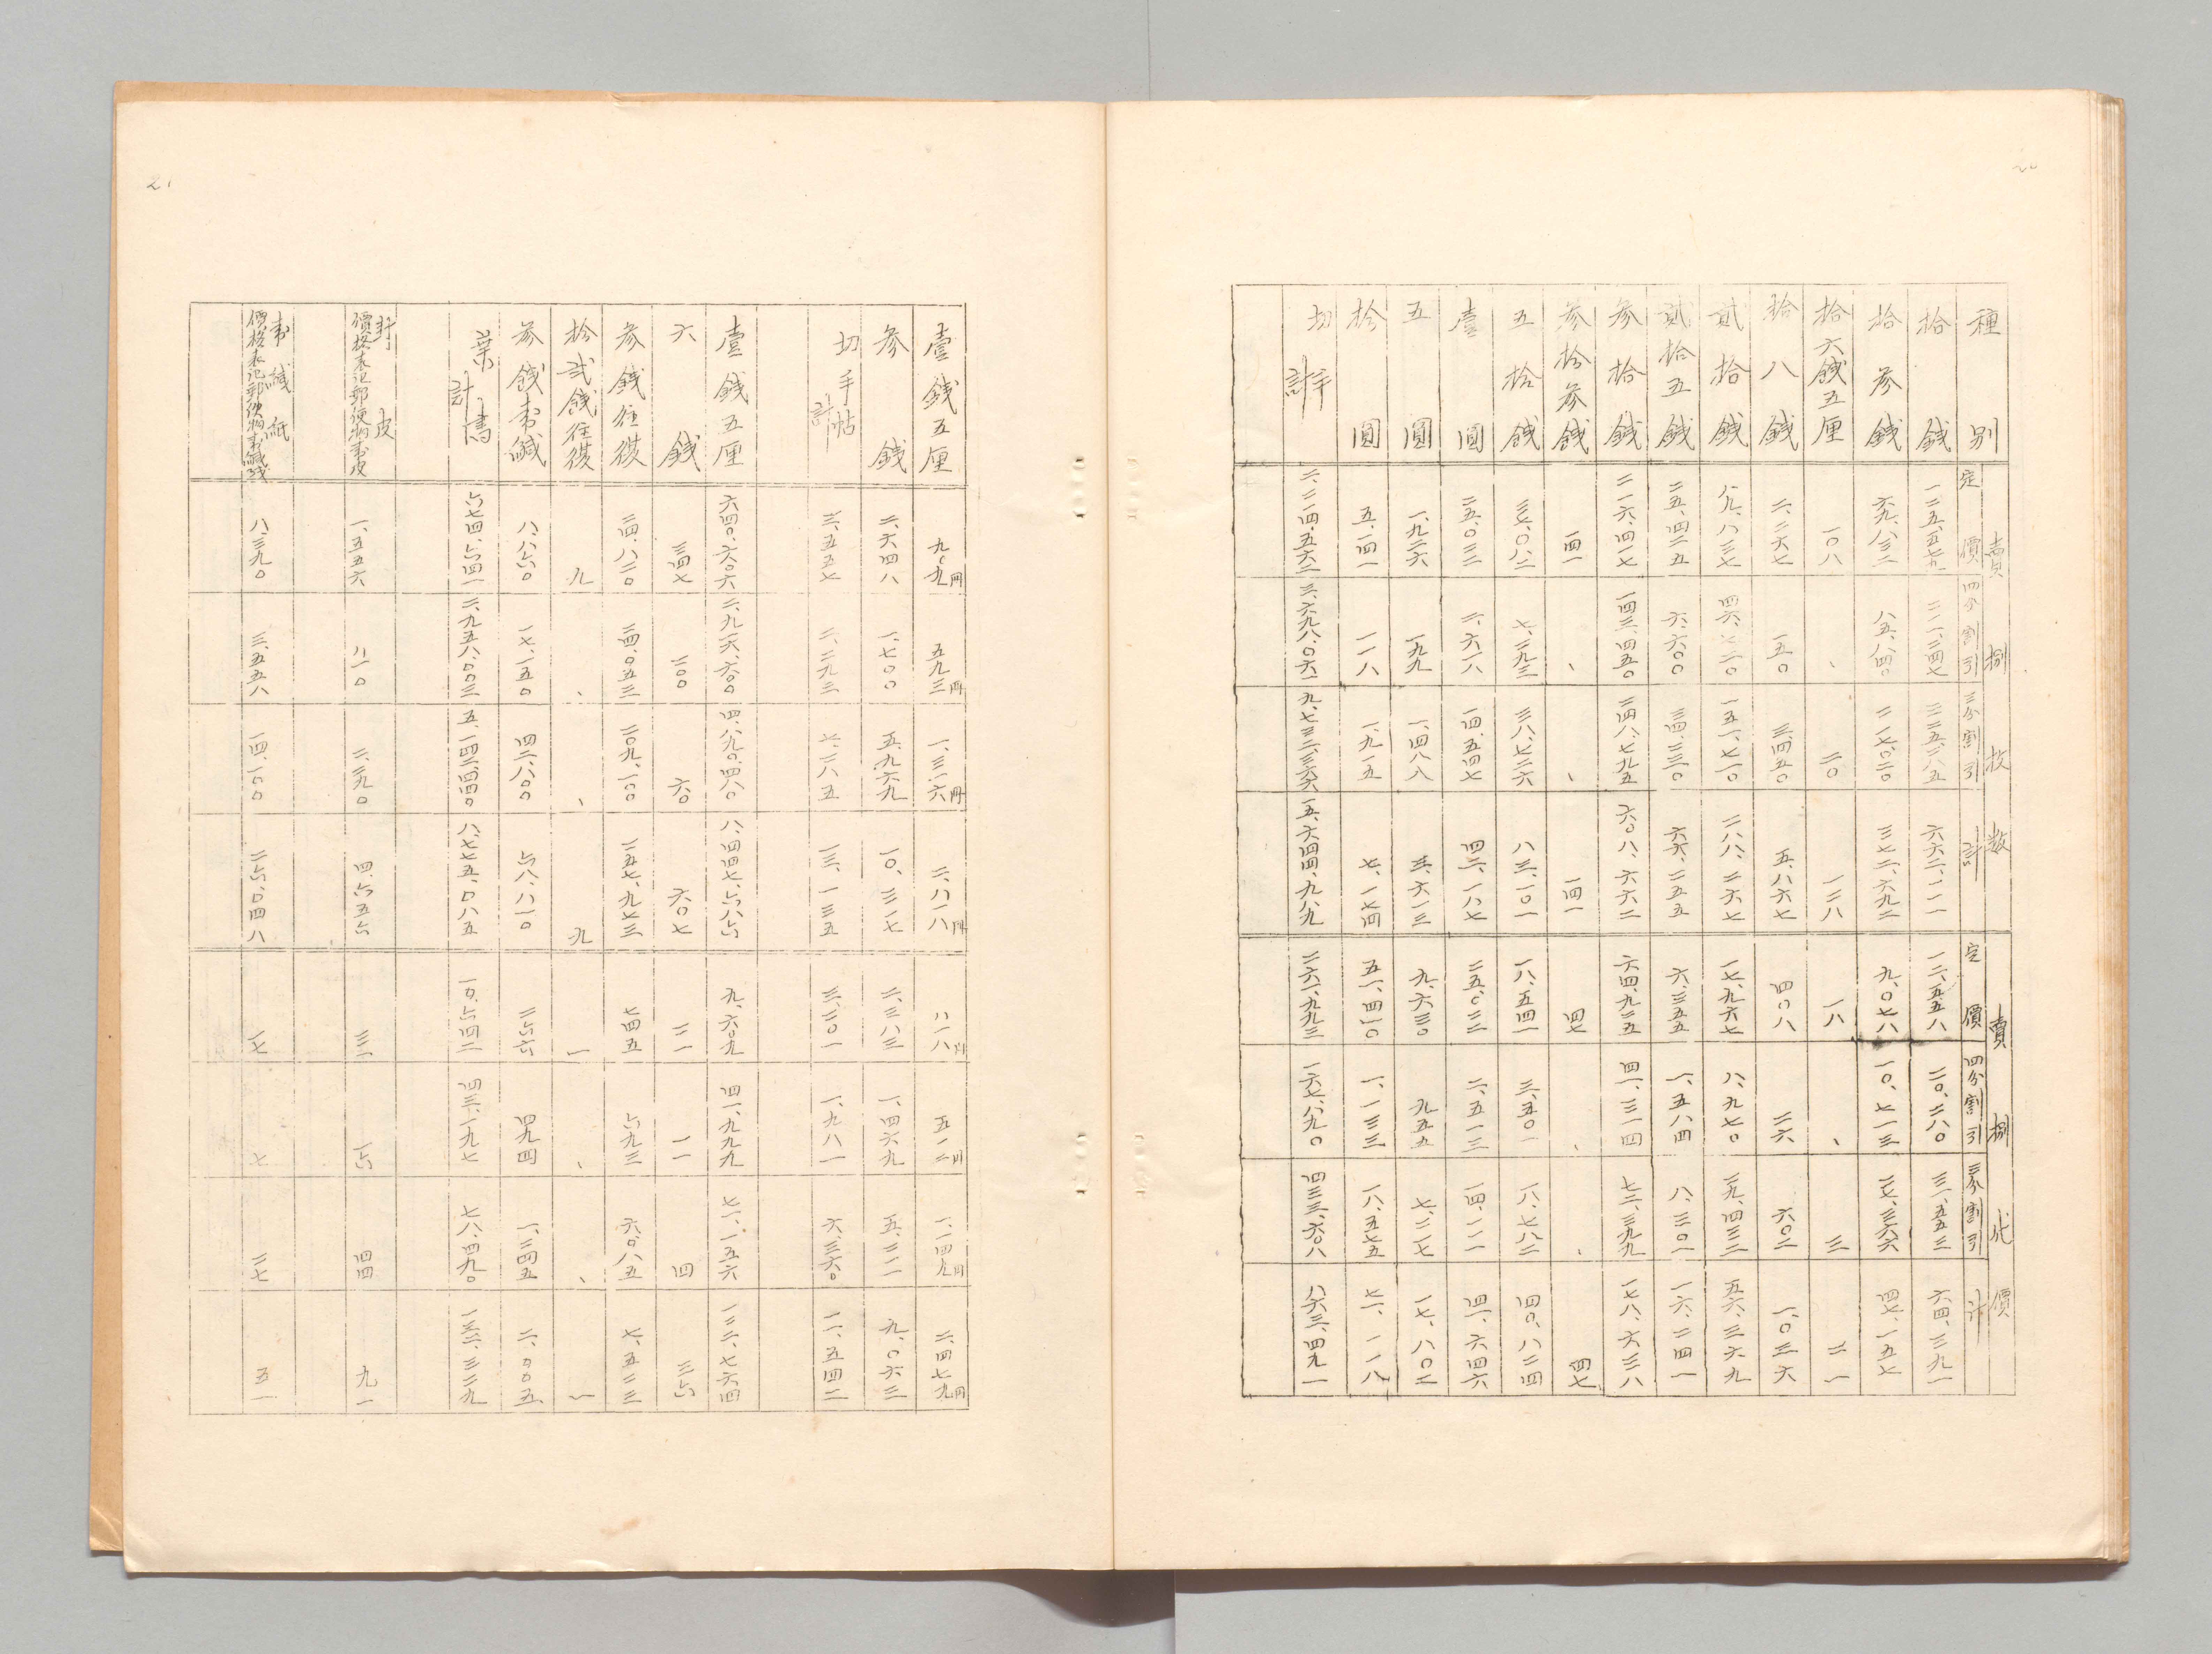 種別 賣捌枚数 賣捌代價
定價 四分割引 三分割引 計 定價 四分割引 三分割引 計
拾錢 一二五、五七九 二一一、二四七 三二五、二八五 六六二、一一一 一二、五五八 二〇、二八〇 三一、五五三 六四、三九一
拾参錢 六九、八三二 八五、八四〇 二一七、〇二〇 三七二、六九二 九、〇七八 一〇、七一三 二七、三六六 四七、一五七
拾六錢五厘 一〇八 、 二〇 一二八 一八 、 三 二一
拾八錢 二、二六七 一五〇 三、四五〇 五、八六七 四〇八 二六 六〇二 一、〇三六
貳拾錢 八九、八三七 四六、七二〇 一五一、七一〇 二八八、二六七 一七、九六七 八、九七〇 二九、四三二 五六、三六九
貳拾五錢 二五、四二五 六、六〇〇 三四、二三〇 六六、二五五 六、三五五 一、五八四 八、三〇一 一六、二四一
参拾錢 二一六、四一七 一四三、四五〇 二四八、七九五 六〇八、六六二 六四、九二五 四一、三一四 七二、三九九 一七八、六三八
参拾参錢 一四一 、 、 一四一 四七 、 、 四七
五拾錢 三七、〇八二 七、二九三 三八、七二六 八三、一〇一 一八、五四一 三、五〇一 一八、七八二 四〇、八二四
壹圓 二五、〇二二 二、六一八 一四、五四七 四二、一八七 二五、〇二二 二、五一三 一四、一一一 四一、六四六
五圓 一、九二六 一九九 一、四八八 三、六一三 九、六三〇 九五五 七、二一七 一七、八〇二
拾圓 五、一四一 一一八 一、九一五 七、一七四 五一、四一〇 一、一三三 一八、五七五 七一、一一八
切手計 二、二一四、五六二 三、六九八、〇六一 九、七三二、三六六 一五、六四四、九八九 二六一、九九三 一六七、八九〇 四三三、六〇八 八六三、四九一
21
壹錢五厘 九〇九円 五九三円 一、三一六円 二、八一八円 八一八円 五一二円 一、一四九円 二、四七九円
参錢 二、六四八 一、七〇〇 五、九六九 一〇、三一七 二、三八三 一、四六九 五、二一一 九、〇六三
切手帖計 三、五五七 二、二九三 七、二八五 一三、一三五 三、二〇一 一、九八一 六、三六〇 一一、五四二
壹錢五厘 六四〇、六〇六 二、九一六、六〇〇 四、八九〇、四八〇 八、四四七、六八六 九、六〇九 四一、九九九 七一、一五六 一二二、七六四
六錢 三四七 二〇〇 六〇 六〇七 二一 一一 四 三六
参錢往復 二四、八二〇 二四、〇五三 二〇九、一〇〇 二五七、九七三 七四五 六九三 六、〇八五 七、五二三
拾貳錢往復 九 、 、 九 一 、 、 一
参錢封緘 八、八六〇 一七、一五〇 四二、八〇〇 六八、八一〇 二六六 四九四 一、二四五 二、〇〇五
葉書計 六七四、六四一 二、九五八、〇〇三 五、一四二、四四〇 八、七七五、〇八五 一〇、六四二 四三、一九七 七八、四九〇 一三二、三二九
封皮
價格表記郵便物封皮 一、五五六 八一〇 二、二九〇 四、六五六 三一 一六 四四 九一
封緘紙
價格表記郵便物封緘紙 八、三九〇 三、五五八 一四、一〇〇 二六、〇四八 一七 七 二七 五一